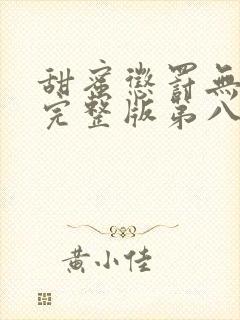 甜蜜懲罰無
完整版第八
黄小佳